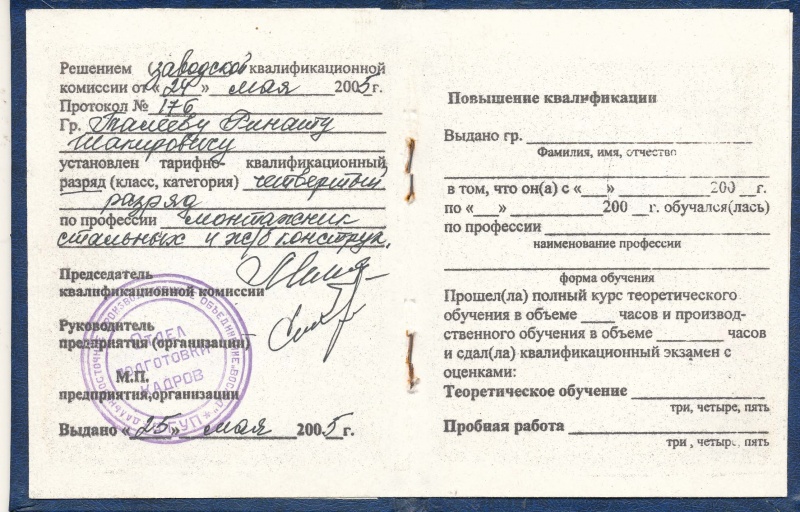 Решением заводской квалификационной
комиссии от «24» мая 2005г.
Протокол № 176
Гр. Талееву Ринату
Шакировичу
установлен тарифно- квалификационный
разряд (класс, категория) четвертый
разряд
по профессии монтажник
стальных и ж/б конструк.
Председатель
квалификационной комиссии
Руководитель
предприятия (организации)
М.П.
предприятия,организации
Выдано «25» мая 2005г.
ОТДЕЛ
ПОДГОТОВКИ
КАДРОВ
Повышение квалификации
Выдано гр.
Фамилия, имя, отчество
в том, что он(а) с «__» 200 __г.
по «__» 200 __г. обучался(лась)
по профессии
наименование профессии
форма обучения
Прошел(ла) полный курс теоретического
обучения в объеме ____ часов и производ-
ственного обучения в объеме ____ часов
и сдал(ла) квалификационный экзамен с
оценками:
Теоретическое обучение
три, четыре, пять
Пробная работа
три , четыре, пять